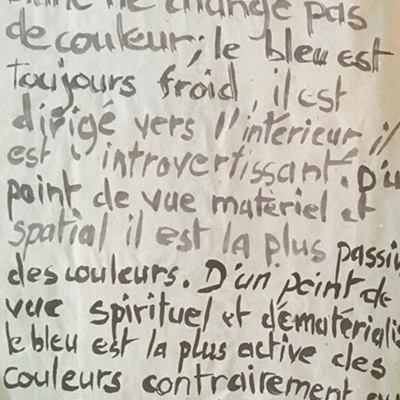 blanc ne change pas
de couleur; le bleu est
toujours froid, il est
dirigé vers l'intérieur il
est introvertissant. D'u
point de vue matériel et
spatial il est la plus passiv
des couleurs. D'un point de
vue spirituel et dématérialis
le bleu est la plus active des
couleurs contrairement